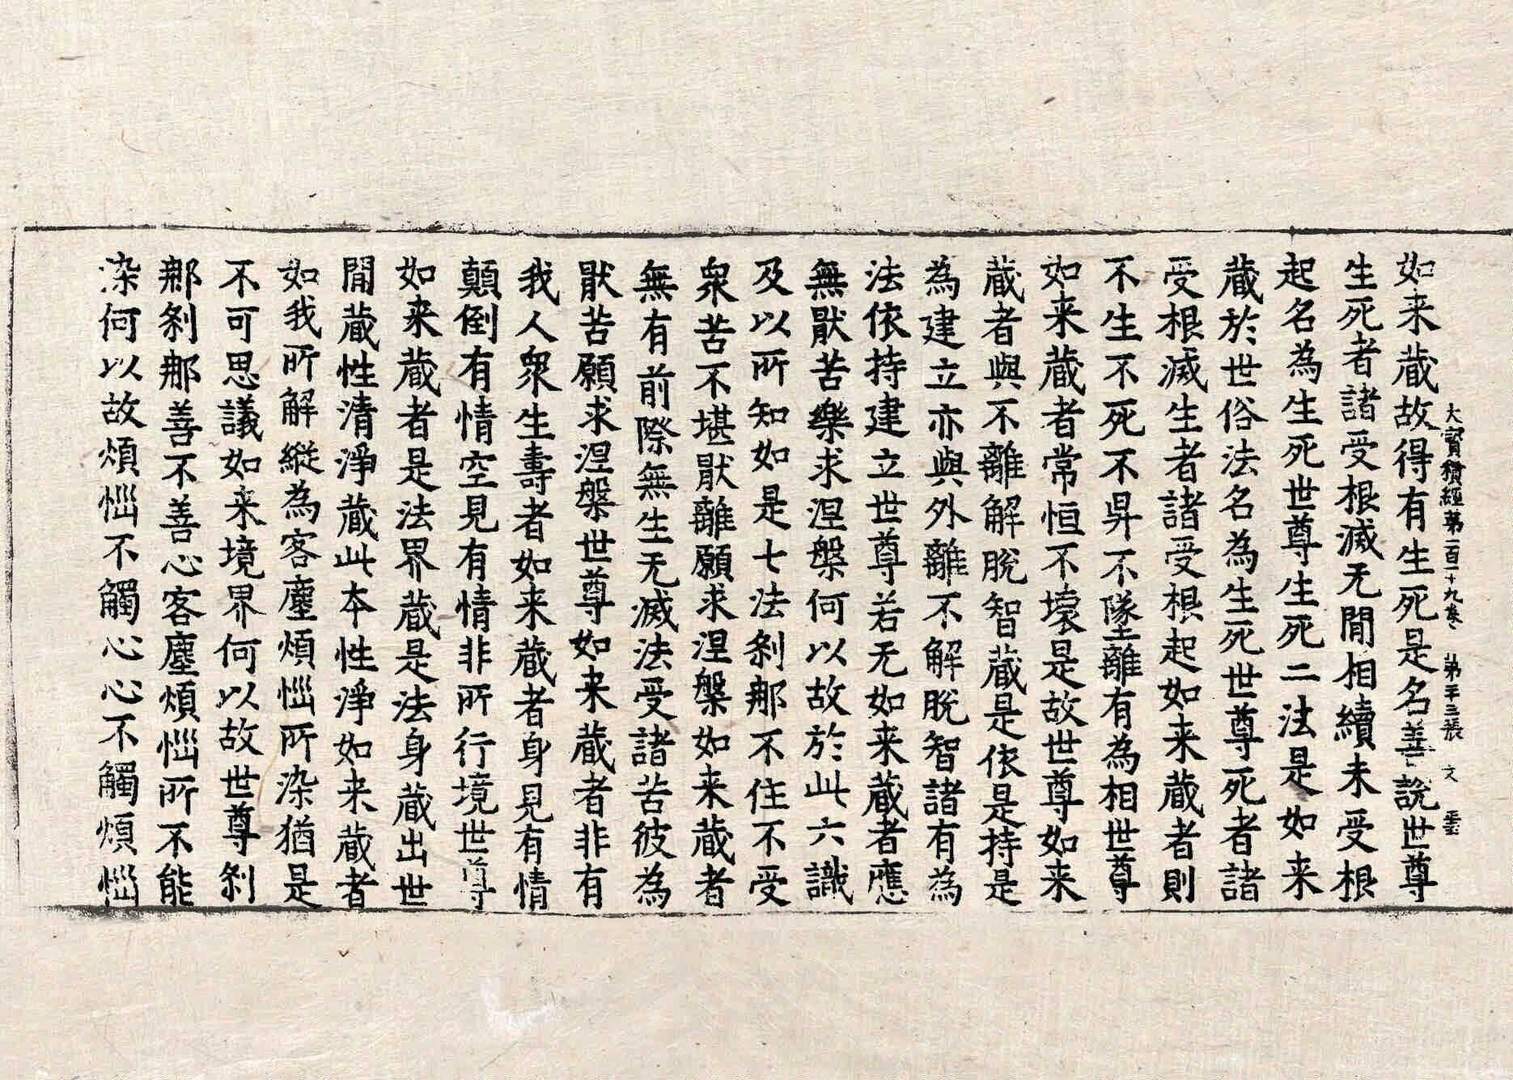 如来蔵故得有生死是名善說世尊
大寶積經第一百一十九卷 第十三張 文
生死者諸受根滅无閒相續未受根
起名為生死世尊生死二法是如来
蔵於世俗法名為生死世尊死者諸
受根滅生者諸受根起如来蔵者則
不生不死不昇不墜離有為相世尊
如来蔵者常恒不壞是故世尊如来
蔵者與不離解脫智蔵是依是持是
為建立亦與外離不解脫智諸有為
法依持建立世尊若无如来蔵者應
無猒苦樂求涅槃何以故於此六識
及以所知如是七法刹那不住不受
衆苦不堪猒離願求涅槃如来蔵者
無有前際無生无滅法受諸苦彼為
猒苦願求涅槃世尊如来蔵者非有
我人衆生壽者如来蔵者身見有情
顛倒有情空見有情非所行境世尊
如来蔵者是法界蔵是法身蔵出世
閒蔵性清淨蔵此本性淨如来蔵者
如我所解縱為客塵煩惱所染猶是
不可思議如来境界何以故世尊刹
那刹那善不善心客塵煩惱所不能
染何以故煩惱不觸心心不觸煩惱